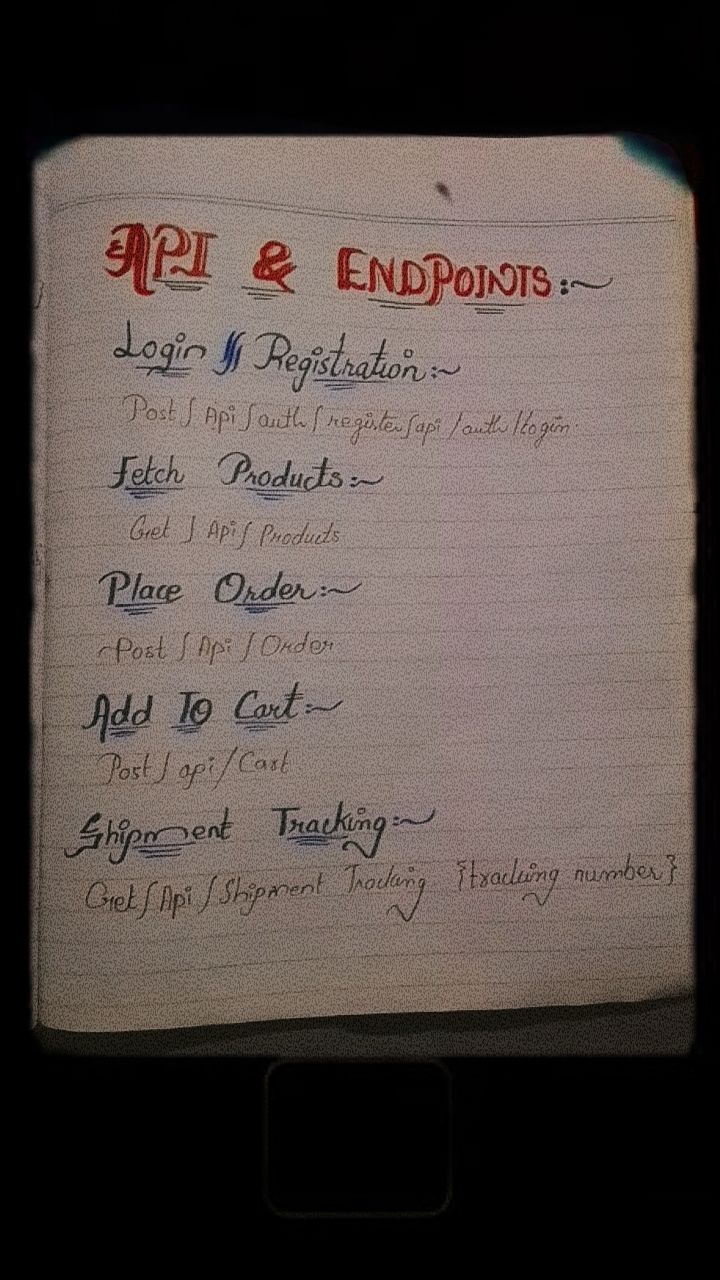 API & ENDPOINTS:~
Login // Registration:~
Post / Api / auth / register / api / auth / login
Fetch Products:~
Get / Api / Products
Place Order:~
Post / Api / Order
Add To Cart:~
Post / api / Cart
Shipment Tracking:~
Get / Api / Shipment Tracking {tracking number}